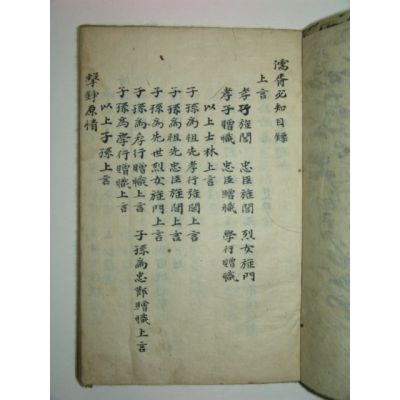 儒胥必知目錄
上言
孝子旌閭 忠臣旌閭 烈女旌門
孝子贈職 忠臣贈職 學行贈職
以上士林上言
子孫為祖先孝行旌閭上言
子孫為祖先忠臣旌閭上言
子孫為先世烈女旌門上言
子孫為孝行贈職上言 子孫為忠節贈職上言
子孫為學行贈職上言
以上子孫上言
擊錚原情